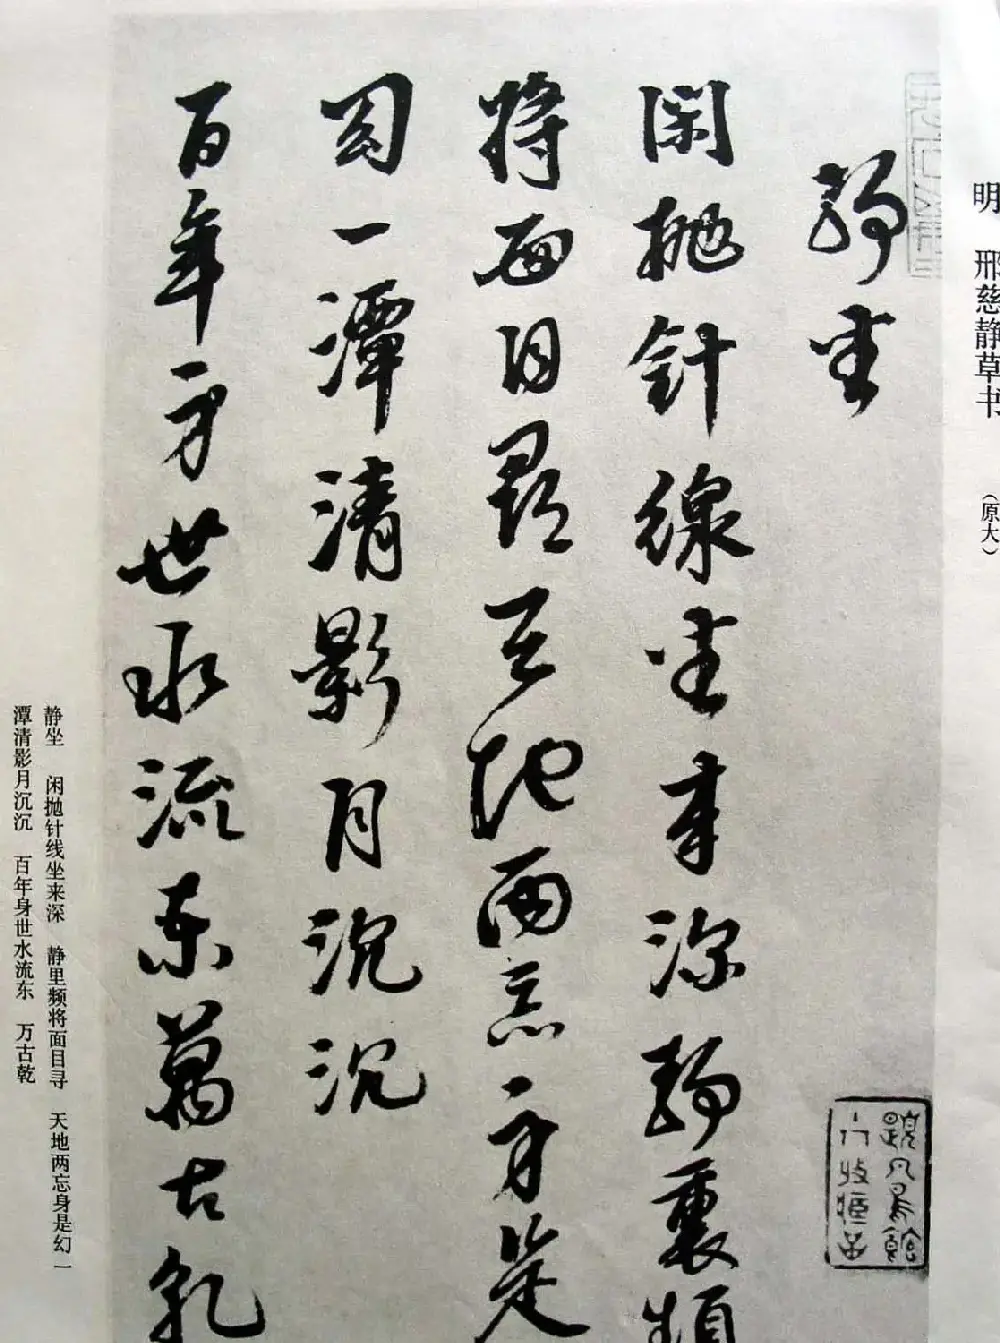 明 邢慈静草书 (原大)
静坐
闲抛針線坐来深静裏頻
将面目尋天地两忘身是
幻一潭清影月沉沉
百年身世水流东萬古乾
静坐 闲抛针线坐来深 静里频将面目寻 天地两忘身是幻 一
潭清影月沉沉 百年身世水流东 万古乾